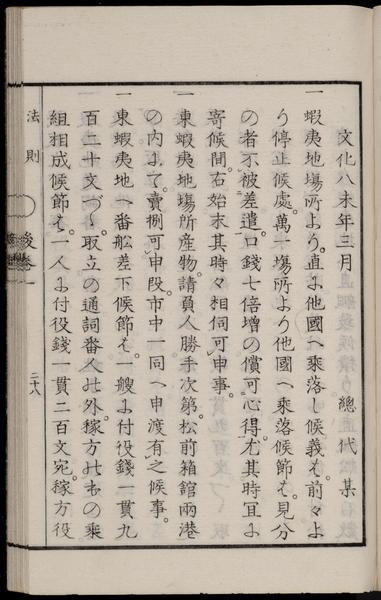 文化八未年三月　　　總代某
一　蝦夷地塲所より。直に他國へ乘落し候義は。前々よ
り停止候處。萬一塲所より他國へ乘落候節は。見分
の者不被差遣。口錢七倍増の償可心得。尤其時宜に
寄候間。右始末其時々相伺可申事。
一　東蝦夷地塲所産物。請負人勝手次第。松前箱館兩港
の内にて。賣捌可申段市中一同へ申渡有之候事。
一　東蝦夷地へ番舩差下候節は。一艘に付役錢二貫九
百二十文づゝ取立の通詞番人の外。稼方のものの乘
組相成候節は。一人に付役錢一貫二百文宛。稼方役
法則
後卷一
二十八